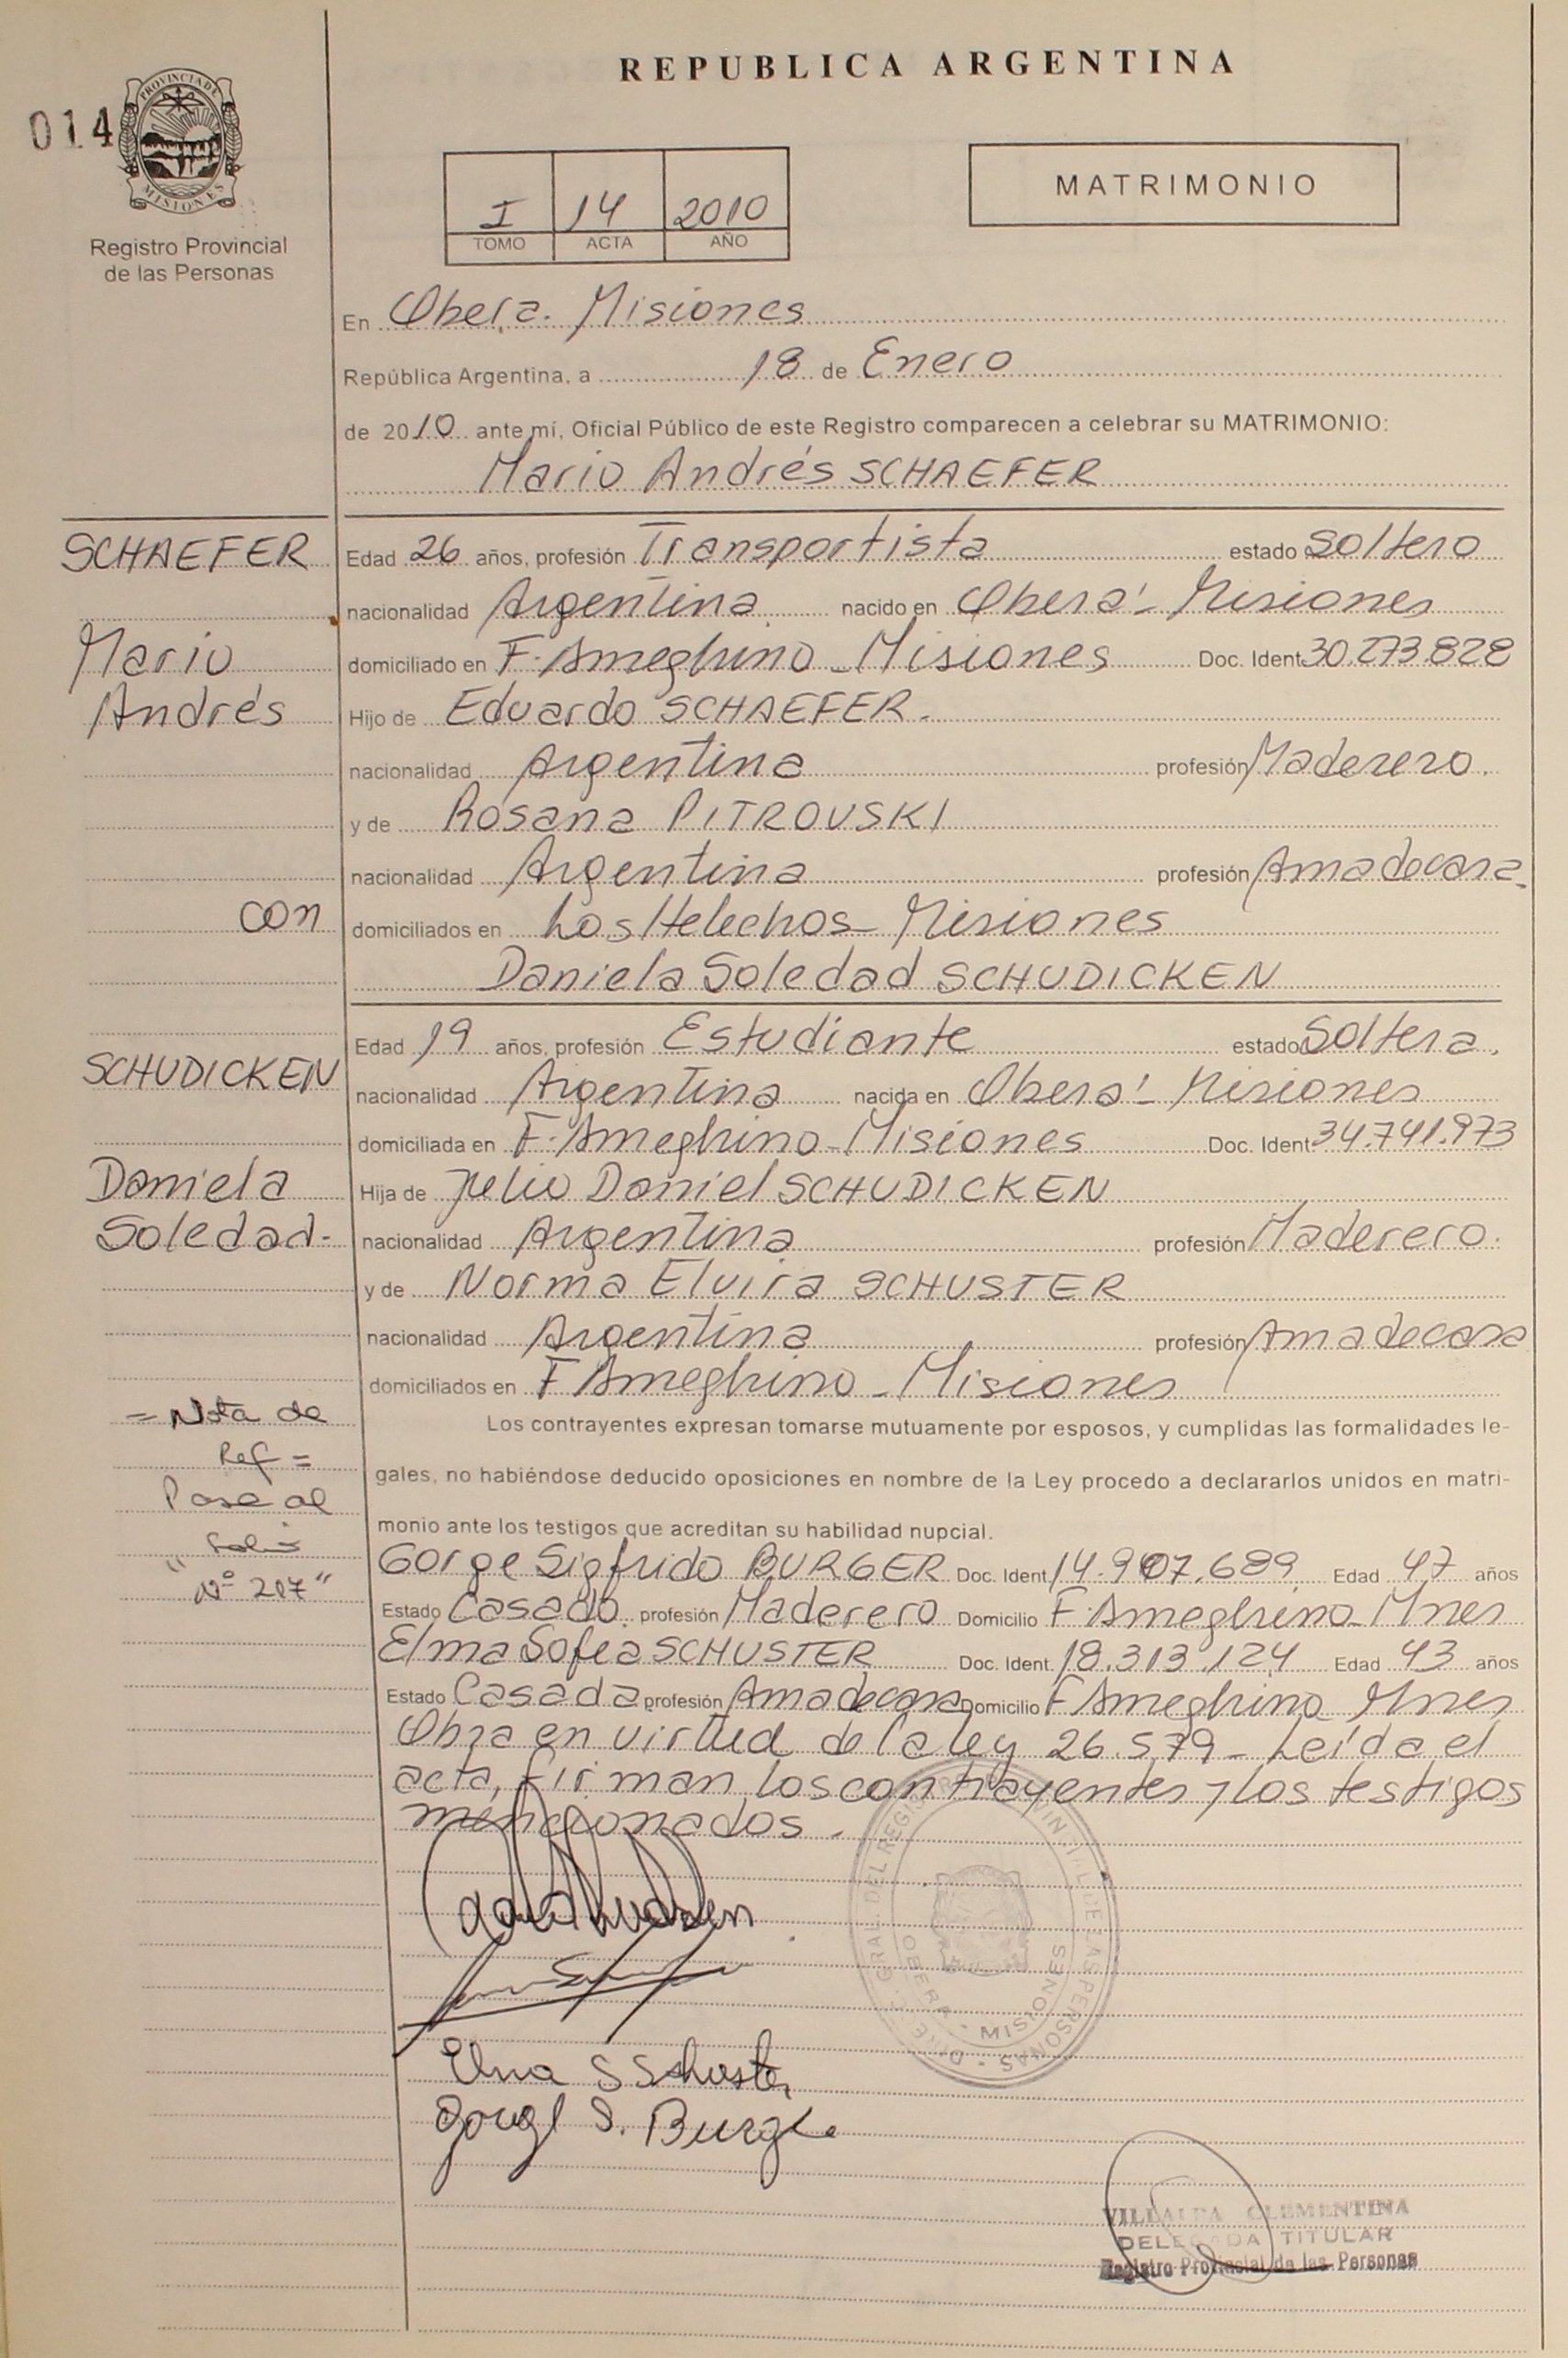 REPUBLICA ARGENTINA
014
PROVINCIA DE
MISIONES
Registro Provincial
de las Personas
I 14 2010
TOMO ACTA AÑO
MATRIMONIO
En Oberá. Misiones
República Argentina, a 18 de Enero
de 2010 ante mí, Oficial Público de este Registro comparecen a celebrar su MATRIMONIO:
Mario Andrés SCHAEFER
SCHAEFER
Mario
Andrés
con
SCHUDICKEN
Daniela
Soledad-
= Nota de
Ref =
Pase al
Folio
"Nº 217"
Edad 26 años, profesión Transportista estado Soltero
nacionalidad Argentina nacido en Oberá - Misiones
domiciliado en F. Ameghino - Misiones Doc. Ident. 30.273.828
Hijo de Eduardo SCHAEFER.
nacionalidad Argentina profesión Maderero.
y de Rosana PITROVSKI
nacionalidad Argentina profesión Ama de casa.
domiciliados en Los Helechos - Misiones
Daniela Soledad SCHUDICKEN
Edad 19 años, profesión Estudiante estado Soltera.
nacionalidad Argentina nacida en Oberá - Misiones
domiciliada en F. Ameghino - Misiones Doc. Ident. 34.741.973
Hija de Julio Daniel SCHUDICKEN
nacionalidad Argentina profesión Maderero.
y de Norma Elvira SCHUSTER
nacionalidad Argentina profesión Ama de casa
domiciliados en F Ameghino - Misiones
Los contrayentes expresan tomarse mutuamente por esposos, y cumplidas las formalidades le-
gales, no habiéndose deducido oposiciones en nombre de la Ley procedo a declararlos unidos en matri-
monio ante los testigos que acreditan su habilidad nupcial.
Gorge Sigfrido BURGER Doc. Ident. 14.907.689 Edad 47 años
Estado Casado profesión Maderero Domicilio F. Ameghino - Mnes
Elma Sofia SCHUSTER Doc. Ident. 18.313.124 Edad 43 años
Estado Casada profesión Ama de casa Domicilio F Ameghino Mnes
Obra en virtud de la ley 26.579 - Leída el
acta, firman los contrayentes y los testigos
mencionados.
DIREC. GRAL. DEL REGISTRO PROVINCIAL DE LAS PERSONAS
OBERA - MISIONES
Elma S Schuster
Gorge S. Burger
VILLALBA CLEMENTINA
DELEGADA TITULAR
Registro Provincial de las Personas